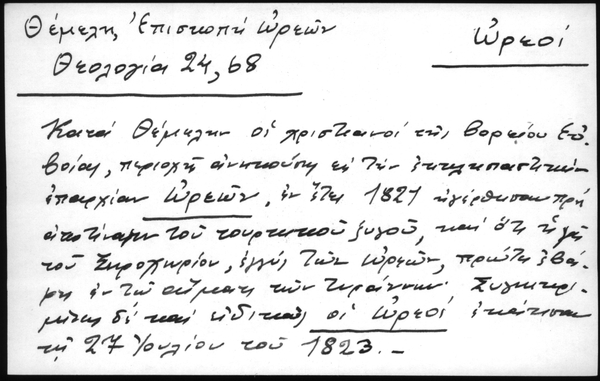 Θέμελη, Ἐπισκοπή Ὠρεῶν
Θεολογία 24, 68
Ὠρεοί
Κατά Θέμελην οἱ χριστιανοί τῆς βορείου Εὐ-
βοίας, περιοχῆς ἀνηκούσης εἰς τήν ἐκκλησιαστικήν
ἐπαρχίαν Ὠρεῶν, ἐν ἔτει 1821 ἠγέρθησαν πρός
ἀποτίναξιν τοῦ τουρκικοῦ ζυγοῦ, καί ὅτι ἡ γῆ
τοῦ Ξηροχωρίου, ἐγγύς τῶν Ὠρεῶν, πρώτη ἐβά-
φη ἐν τῷ αἵματι τῶν τυράννων. Συγκεκρι-
μένως δέ καί εἰδικῶς οἱ Ὠρεοί ἐκάησαν
τῇ 27 Ἰουλίου τοῦ 1823. –